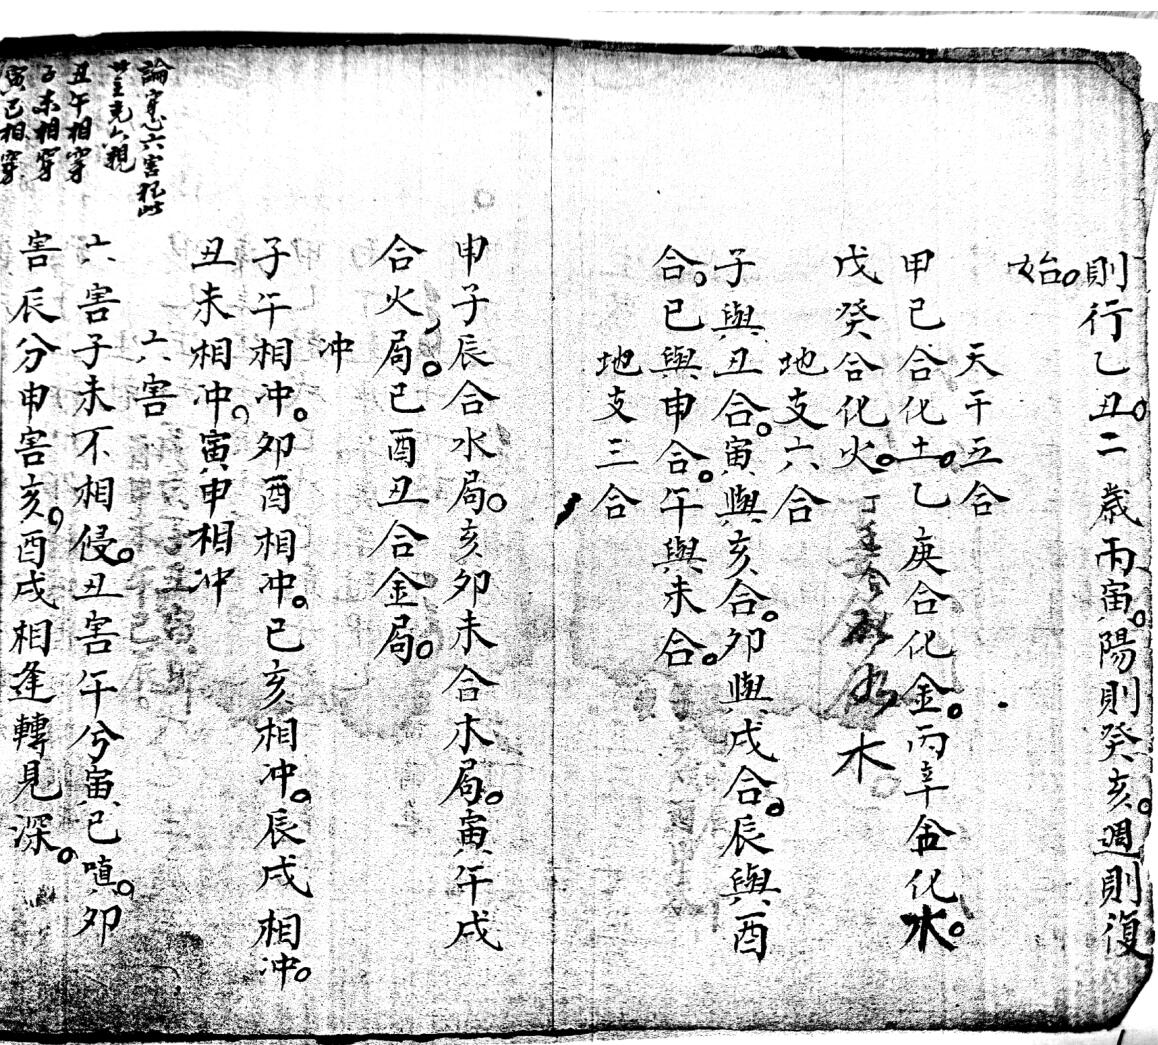 則行乙丑。二歲丙寅。陽則癸亥。週則復
始。
天干五合
甲己合化土。乙庚合化金。丙辛合化水。
戊癸合化火。丁壬合化木
地支六合
子與丑合。寅與亥合。卯與戌合。辰與酉
合。巳與申合。午與未合。
地支三合
申子辰合水局。亥卯未合木局。寅午戌
合火局。巳酉丑合金局。
冲
子午相冲。卯酉相冲。巳亥相冲。辰戌相冲。
丑未相冲。寅申相冲
六害
六害子未不相侵。丑害午兮寅巳嗔。卯
害辰兮申害亥。酉戌相逢轉見深。
論穿心六害
六親
丑午相穿
子未相穿
寅巳相穿